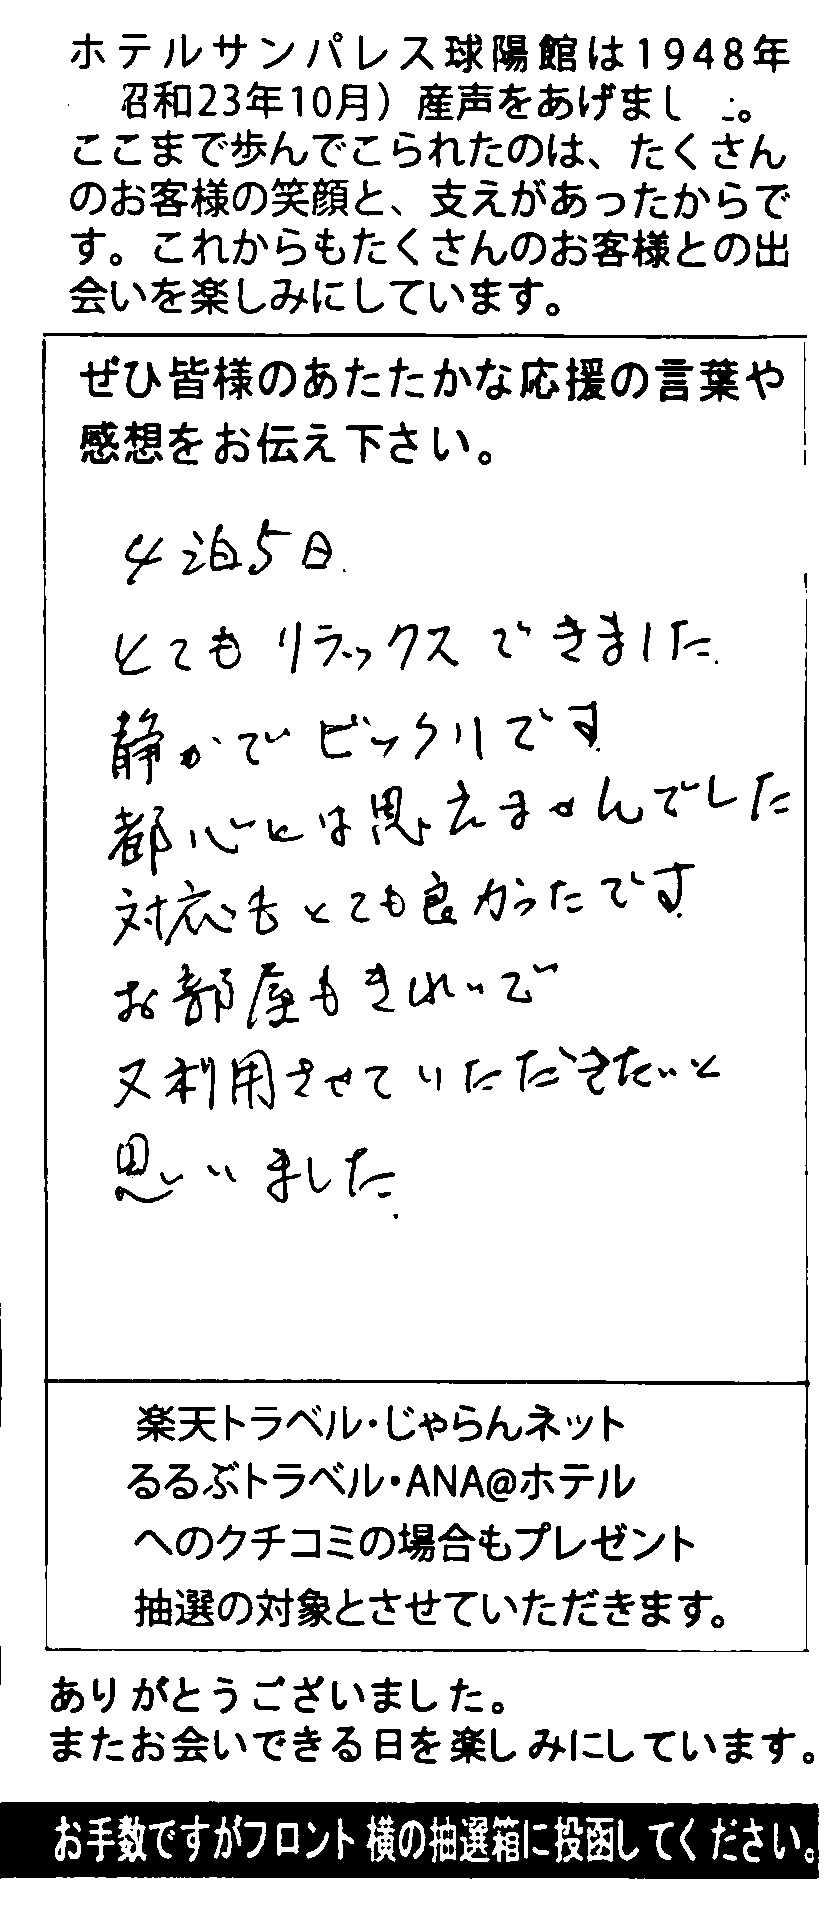 ホテルサンパレス球陽館は1948年
昭和23年10月）産声をあげまし 。
ここまで歩んでこられたのは、たくさん
のお客様の笑顔と、支えがあったからで
す。これからもたくさんのお客様との出
会いを楽しみにしています。
ぜひ皆様のあたたかな応援の言葉や
感想をお伝え下さい。
4泊5日
とてもリラックスできました
静かでビックリです
都心とは思えませんでした
対応もとても良かったです
お部屋もきれいで
又利用させていただきたいと
思いました
楽天トラベル・じゃらんネット
るるぶトラベル・ANA@ホテル
へのクチコミの場合もプレゼント
抽選の対象とさせていただきます。
ありがとうございました。
またお会いできる日を楽しみにしています。
お手数ですがフロント横の抽選箱に投函してください。